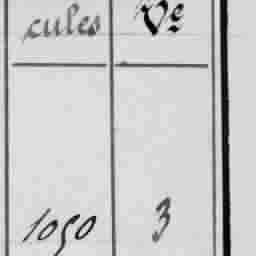 cules Ve
1050 3